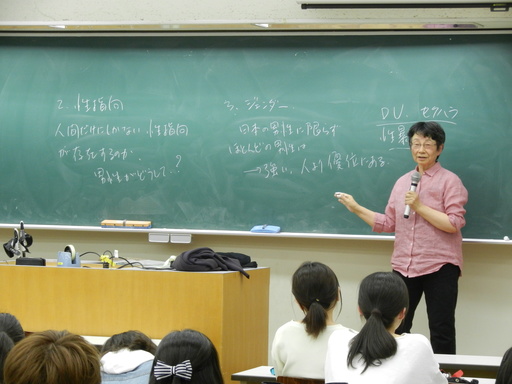 2. 性指向
人間だけにしかない 性指向
が存在するのか
男性がどうして…?
3. ジェンダー
日本の男性に限らず
ほとんどの男性は
→強い、人より優位にある
DV セクハラ
性暴